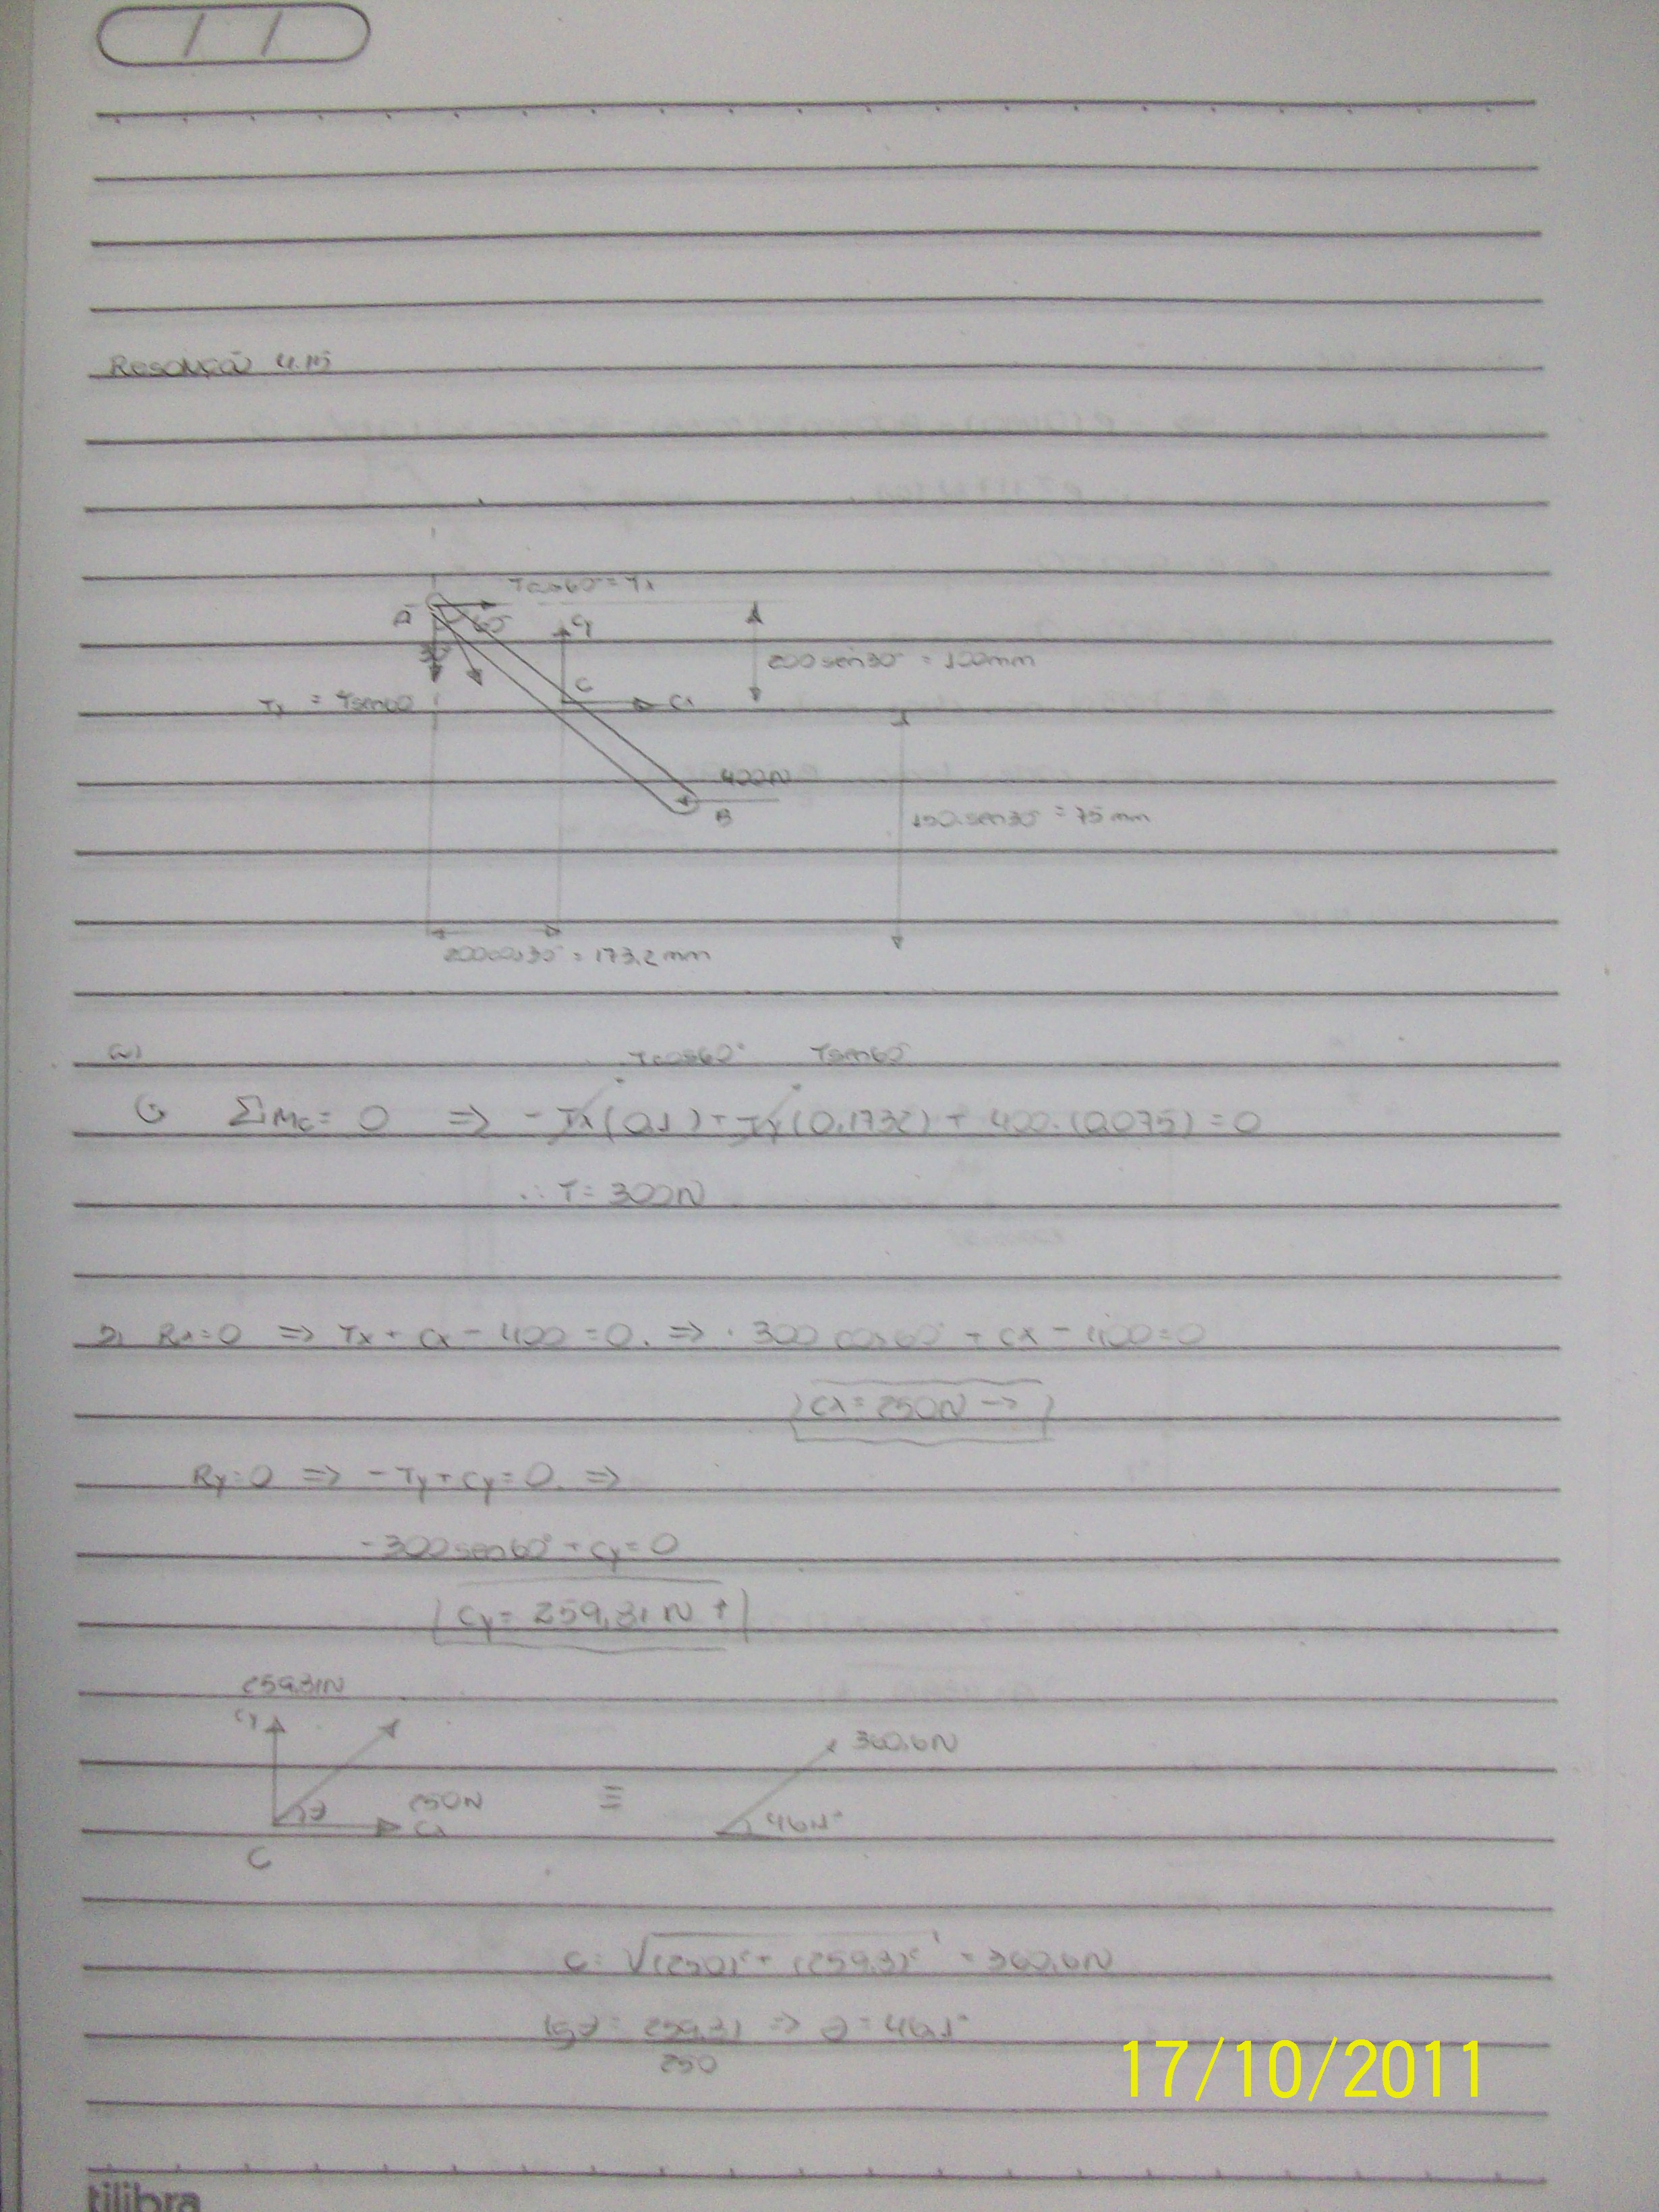 Resolução 4.15
Tcos60° = Tx
A
60°
Cy
30°
200 sen30° = 100mm
C
Cx
Ty = Tsen60
400N
B
150.sen30° = 75 mm
200cos30° = 173,2 mm
a)
Tcos60° Tsen60
ΣMc = 0 ⇒ - Tx (0,1) + Ty (0,1732) + 400.(0,075) = 0
∴ T = 300N
2) Rx=0 ⇒ Tx + Cx - 400 = 0. ⇒ 300 cos60° + Cx - 400=0
Cx = 250N →
Ry=0 ⇒ - Ty + Cy = 0 ⇒
-300sen60° + Cy = 0
Cy = 259,81 N ↑
259,81N
Cy
360,6N
θ
250N
≡
Cx
46,1°
C
C = √(250)² + (259,8)² = 360,6N
tgθ = 259,81 ⇒ θ = 46,1°
250
17/10/2011
tilibra